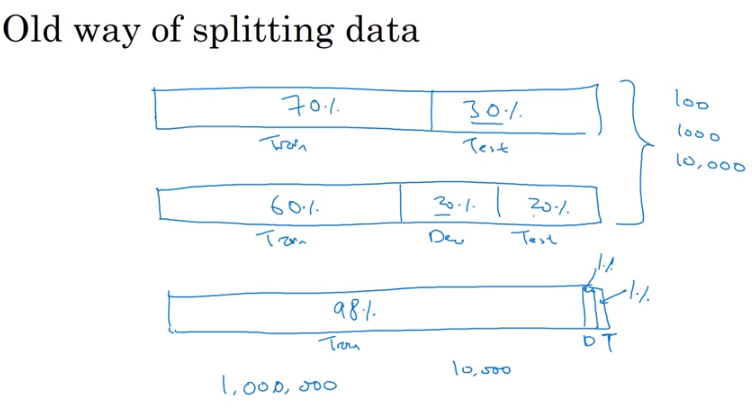 Old way of splitting data
70% 30%
Train Test
100
1000
10,000
60% 20% 20%
Train Dev Test
1%
98% 1%
Train D T
1,000,000 10,000